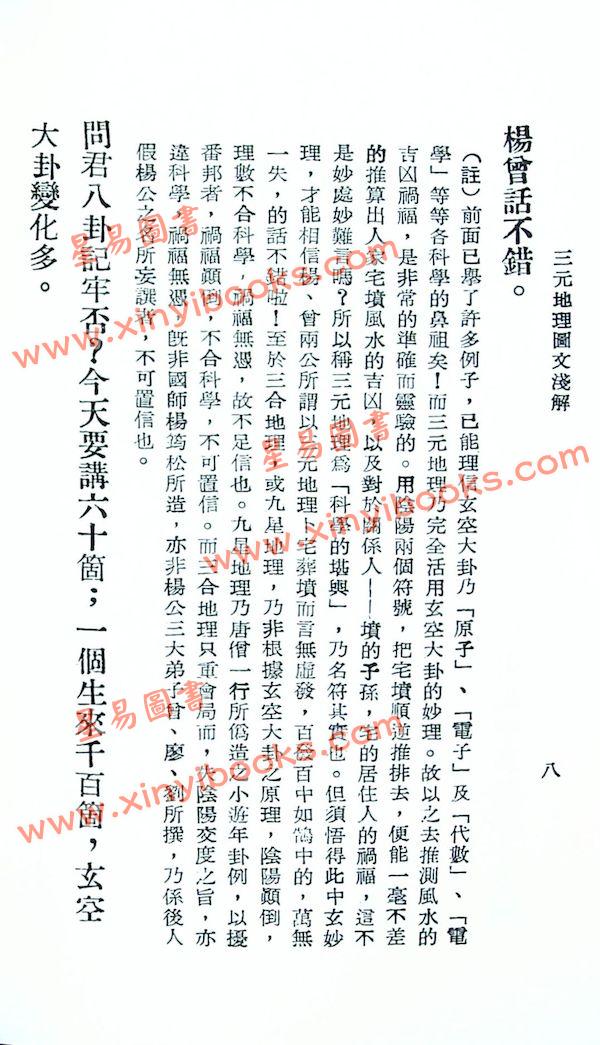 三元地理圖文淺解
八
楊曾話不錯。
（註）前面已舉了許多例子，已能理信玄空大卦乃「原子」、「電子」及「代數」、「電
學」等等各科學的鼻祖矣！而三元地理乃完全活用玄空大卦的妙理。故以之去推測風水的
吉凶禍福，是非常的準確而靈驗的。用陰陽兩個符號，把宅墳順逆推排去，便能一毫不差
的推算出人家宅墳風水的吉凶，以及對於關係人——墳的子孫，宅的居住人的禍福，這不
是妙處妙難言嗎？所以稱三元地理爲「科學的堪輿」，乃名符其實也。但須悟得此中玄妙
理，才能相信楊、曾兩公所謂以三元地理卜宅葬墳而言無虛發，百發百中如鵠中的，萬無
一失，的話不錯啦！至於三合地理，或九星地理，乃非根據玄空大卦之原理，陰陽顚倒，
理數不合科學，禍福無憑，故不足信也。九星地理乃唐僧一行所僞造之小遊年卦例，以擾
番邦者，禍福顚倒，不合科學，不可置信。而三合地理只重會局而，失陰陽交度之旨，亦
違科學，禍福無憑，旣非國師楊筠松所造，亦非楊公三大弟子曾、廖、劉所撰，乃係後人
假楊公之名所妄譔者，不可置信也。
問君八卦記牢否？今天要講六十箇；一個生來千百箇，玄空
大卦變化多。
星易圖書
www.xinyibooks.com
星易圖書
www.xinyibooks.com
星易圖書
www.xinyibooks.com